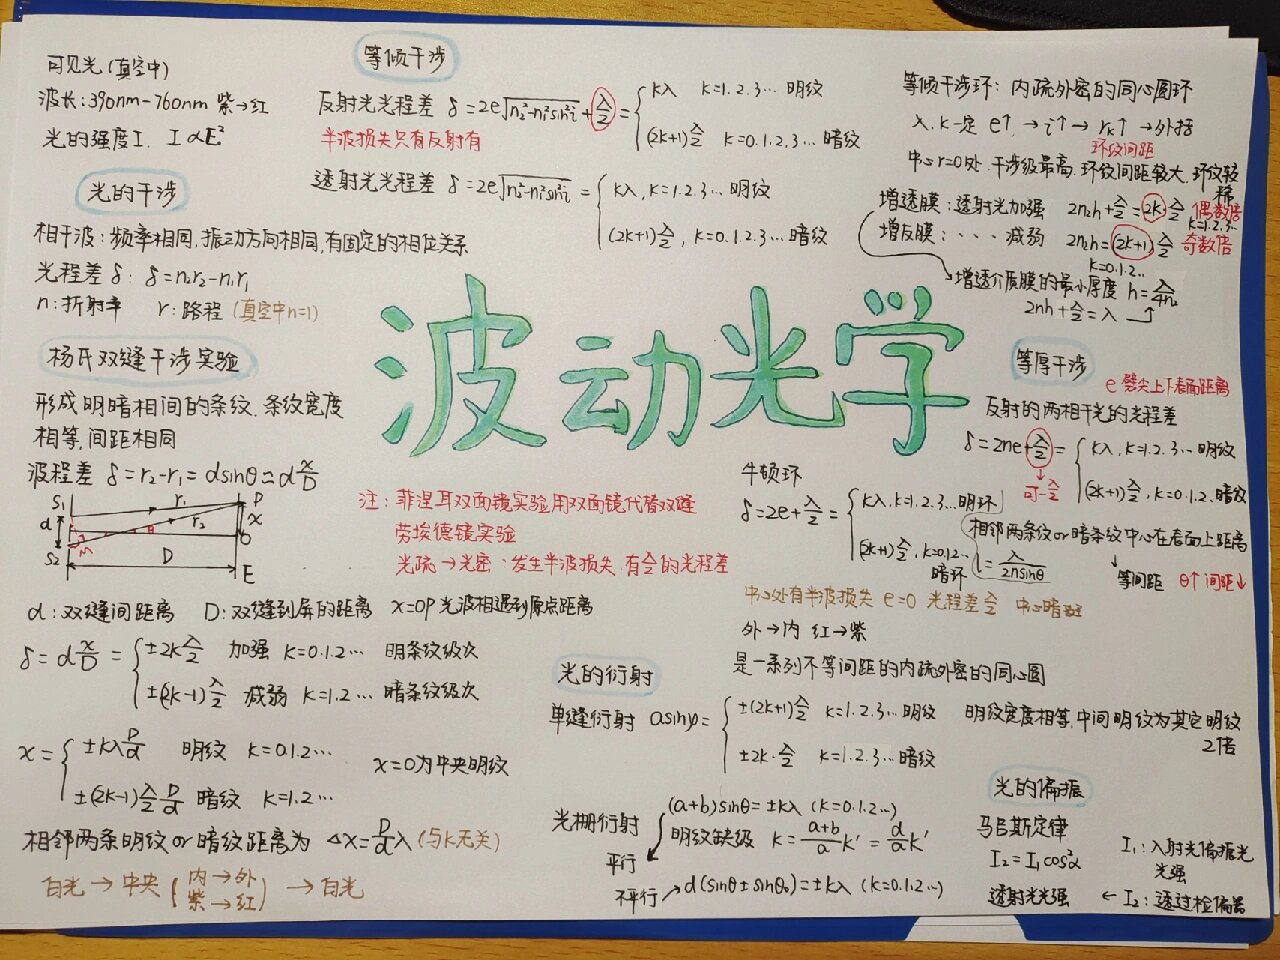 可见光(真空中)
波长:390nm-760nm 紫→红
光的强度I. I∝E²
光的干涉
相干波:频率相同,振动方向相同,有固定的相位关系
光程差δ: δ=n₂r₂-n₁r₁
n:折射率 r:路程(真空中n=1)
杨氏双缝干涉实验
形成明暗相间的条纹.条纹宽度
相等,间距相同
波程差 δ=r₂-r₁=dsinθ≈d x/D
S₁ r₁ P
d θ r₂ x
S₂ M O
D E
d:双缝间距离 D:双缝到屏的距离 x=OP光波相遇到原点距离
δ=d x/D= ±2k λ/2 加强 k=0.1.2… 明条纹级次
±(2k-1) λ/2 减弱 k=1.2… 暗条纹级次
x= ±kλ D/d 明纹 k=0.1.2…
±(2k-1) λ/2 D/d 暗纹 k=1.2…
x=0为中央明纹
相邻两条明纹or暗纹距离为 Δx=D/d λ(与k无关)
白光→中央(内→外 紫→红)→白光
等倾干涉
反射光光程差 δ=2e√n₂²-n₁²sin²i+λ/2= kλ k=1.2.3… 明纹
(2k+1) λ/2 k=0.1.2.3… 暗纹
半波损失只有反射有
透射光光程差 δ=2e√n₂²-n₁²sin²i= kλ,k=1.2.3… 明纹
(2k+1) λ/2,k=0.1.2.3…暗纹
等倾干涉环:内疏外密的同心圆环
λ.k一定 e↑→i↑→rₖ↑→外括
环纹间距
中心r=0处.干涉级最高.环纹间距较大.环纹较稀
增透膜:透射光加强 2n₂h+λ/2=2k·λ/2 偶数倍
k=1.2.3…
增反膜:・・・减弱 2n₂h=(2k+1) λ/2 奇数倍
k=0.1.2…
增透介质膜的最小厚度 h=λ/4n₂
2nh+λ/2=λ
波动光学
等厚干涉
e劈尖上下表面距离
反射的两相干光的光程差
δ=2ne+λ/2= kλ,k=1.2.3…明纹
(2k+1) λ/2,k=0.1.2.暗纹
可-λ/2
相邻两条纹or暗条纹中心在表面上距离
l=λ/2nsinθ
等间距 θ↑间距↓
牛顿环
δ=2e+λ/2= kλ,k=1.2.3…明环
(2k+1) λ/2,k=0.1.2… 暗环
中心处有半波损失 e=0 光程差λ/2 中心暗斑
外→内 红→紫
是一系列不等间距的内疏外密的同心圆
注:菲涅耳双面镜实验用双面镜代替双缝
劳埃德镜实验
光疏→光密:发生半波损失.有λ/2的光程差
光的衍射
单缝衍射 asinφ= ±(2k+1) λ/2 k=1.2.3…明纹
±2k·λ/2 k=1.2.3…暗纹
明纹宽度相等,中间明纹为其它明纹
2倍
光栅衍射 (a+b)sinθ=±kλ (k=0.1.2…)
明纹缺级 k=a+b/a k'=d/a k'
平行
不平行→d(sinθ±sinθ₀)=±kλ (k=0.1.2…)
光的偏振
马吕斯定律
I₂=I₁cos²α
透射光光强
I₁:入射光偏振光
光强
← I₂:透过检偏器